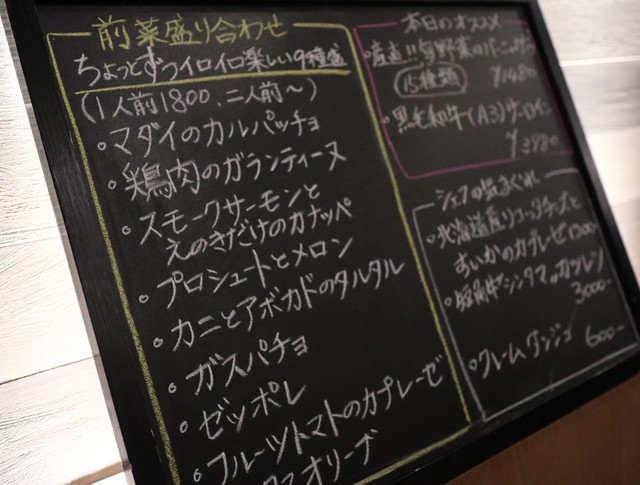 前菜盛り合わせ
ちょっとずつイロイロ楽しい9種盛
(1人前1800、二人前〜)
・マダイのカルパッチョ
・鶏肉のガランティーヌ
・スモークサーモンと
えのきだけのカナッペ
・プロシュートとメロン
・カニとアボカドのタルタル
・ガスパチョ
・ゼッポレ
・フルーツトマトのカプレーゼ
オリーブ
本日のオススメ
・産直!!旬野菜のバーニャカウダ
15種類 ¥1480
・黒毛和牛(A3)サーロイン
シェフの気まぐれ
・北海道産リコッタチーズと
すいかのカプレーゼ
・短角牛
3000-
・クレームダンジュ
600-